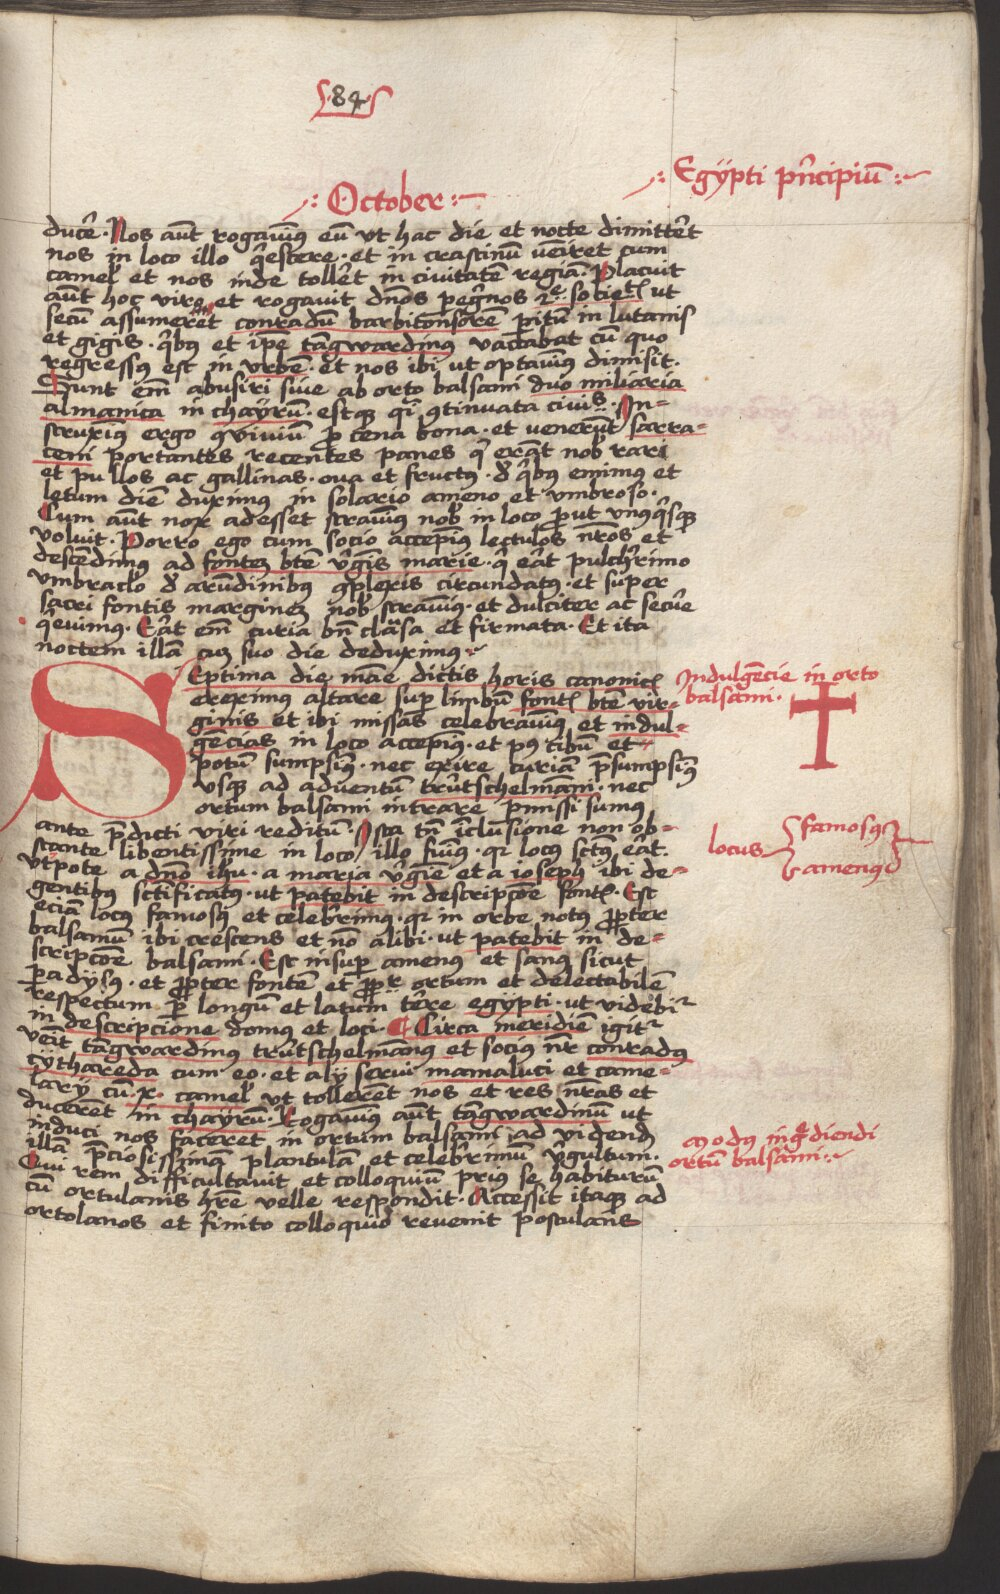 84
Egÿpti pͬncipiū
October
ducͤre · Nos aūt rogauimꝯ eū vt hac die et nocte dimittͤret
nos in loco illo qͥescere · et in crastinū veniret cum
camelꝭ et nos inde tollͤret in ciuitatē regiā · Placuit
aūt hoc viro et rogauit dnōs peg̃nos ut
secū assumerēt conradū barbitonsorē pitū in lutanis
et gigis · qͥbꝯ et ip̄e tāgwardinꝯ vacabat cū quo
regressꝯ est in vrbē · et nos ibi ut optauimꝯ dimisit ·
Sunt em̄ abusiri siue ab orto balsami duo miliaria
almanica in chaÿrū · estqꝫ qͥ ꝯtinuata ciuiˢ · In=
struximꝯ ergo ꝯviuiū ꝓ cena bona · et venerūt sarra=
ceni portantes recentes panes qͥ erāt nobꝭ rari
et pullos ac gallinas · oua et fructꝯ · dͤ qͥbꝯ emimꝯ et
letum diē duximꝯ in solario ameno et vmbroso ·
Cum aūt nox adesset strauimꝯ nobꝭ in loco ꝓut vnꝯqͥsqꝫ
voluit · Porro ego cum socio accepimꝯ lectulos nr̄os et
descendimꝯ ad fontez btē vͥgͥnis marie · qͥ erat pulchͤrimo
vmbraclo dͤ arūdinibꝯ ꝯplexis circundatꝯ · et super
sacri fontis marginez nobꝭ strauimꝯ · et dulciter ac secure
qͥeuimꝯ · Erat em̄ curia bn̄ clausa et firmata · Et ita
noctem illā cuꝫ suo die deduximꝯ
SEptima die mane dictis horis canonicꝭ
ereximꝯ altare sup limbū fontꝭ btē vir=
ginis et ibi missas celebrauimꝯ et indul=
gēcias in loco accepimꝯ · et pꝯ cibū et
potū sumpsimꝯ · nec exire curiā p̄sumpsimꝯ
vsqꝫ ad aduentū trutschelmāni · nec
ortum balsami intrare pmissi sumus
ante p̄dicti viri reditū · Ista tn̄ īclusione non ob=
stante libentissime in loco illo fuimꝯ · qꝛ locꝯ sctꝯ erat ·
vtpote a dn̄o ihu · a maria vͥgͥne et a ioseph ibi de=
gentibꝯ sctificatꝯ · ut patebit in descripcōe fontꝭ · Est
eciā locꝯ famosꝯ et celeberrimꝯ · qꝛ in orbe notꝯ ꝓpter
balsamū ibi crescens et nō alibi · ut patebit in de=
scripcōe balsami · Est insuꝑ amenꝯ et sanꝯ sicut
ꝑadÿsꝯ · et ꝓpter fontē et ꝓptͬ ortum et delectabilē
respectum ꝑ longū et latum tͤre egÿpti · ut videbiͬ
in descripcione domꝯ et loci · ¶ Circa meridiē igitͬ
venit tāgwardinꝯ trutschelmānꝯ et sociꝯ nr̄ conradꝯ
cÿthareda cum eo · et alÿ serui mamaluci et came=
larÿ cū · x · camelꝭ vt tollerēt nos et res nr̄as et
ducerēt in chaÿrū · Rogauimꝯ aūt tāgwardinū ut
induci nos faceret in ortum balsami ad videnđ
illā p̄ciosissimā plantulā et celebͤrimū vͥgultum ·
Qui rem difficultauit et colloquiū prius se habiturū
cū ortulanis hr̄e velle respondit · Accessit itaqꝫ ad
ortolanos et finito colloquio reuenit postulans
Indulgēcie in orto
balsami ·
locus famosꝯ
amenꝯ
Modꝯ ingͬdiendi
ortū balsami